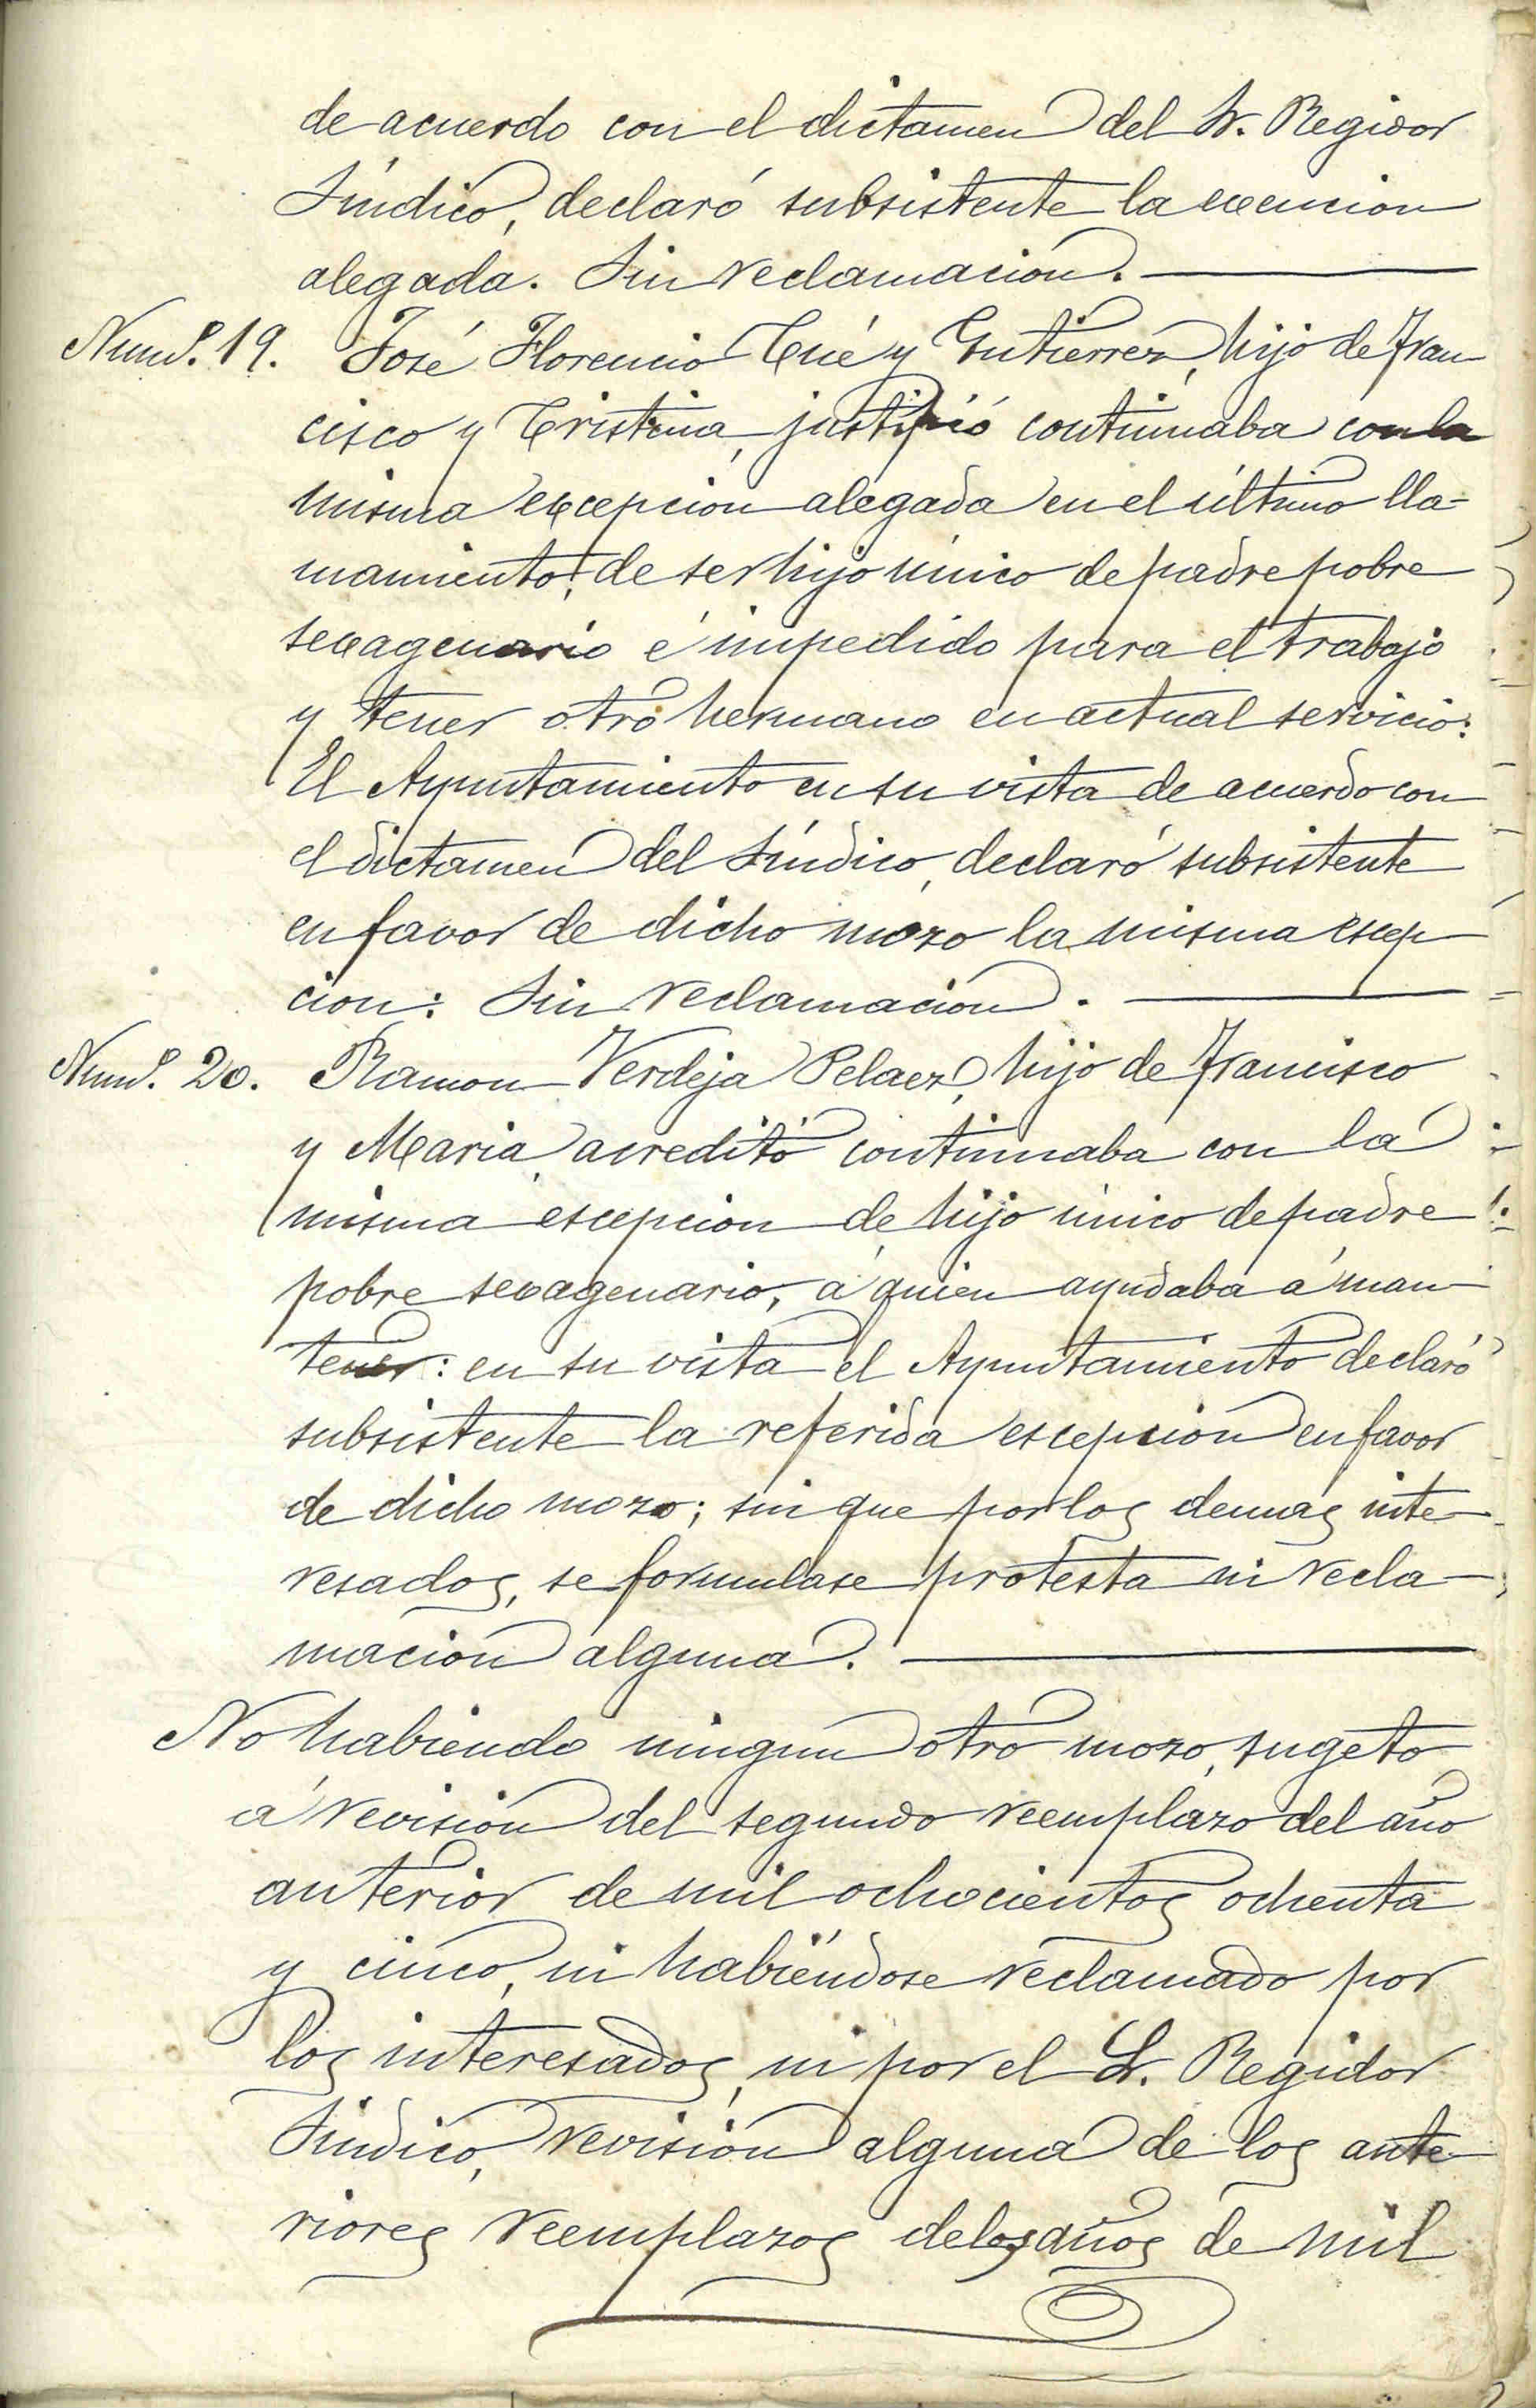 de acuerdo con el dictamen del Sr. Regidor
Síndico, declaró subsistente la exencion
alegada. Sin reclamacion.
Numº. 19. José Florencio Cué y Gutierrez, hijo de Fran-
cisco y Cristina, justificó continuaba con la
misma excepcion alegada en el último lla-
mamiento, de ser hijo único de padre pobre
sexagenario é impedido para el trabajo
y tener otro hermano en actual servicio:
El Ayuntamiento en su vista de acuerdo con
el dictamen del Síndico, declaró subsistente
en favor de dicho mozo la misma escep-
cion: Sin reclamacion.
Numº. 20. Ramon Verdeja Pelaez, hijo de Francisco
y Maria, acreditó continuaba con la
misma escepcion de hijo único de padre
pobre sexagenario, á quien ayudaba á man-
tener: en su vista el Ayuntamiento declaró
subsistente la referida escepcion en favor
de dicho mozo; sin que por los demas inte-
resados, se formulase protesta ni recla-
macion alguna.
No habiendo ningun otro mozo, sugeto
á revision del segundo reemplazo del año
anterior de mil ochocientos ochenta
y cinco, ni habiéndose reclamado por
los interesados, ni por el Sr. Regidor
Síndico, revision alguna de los ante-
riores reemplazos de los años de mil